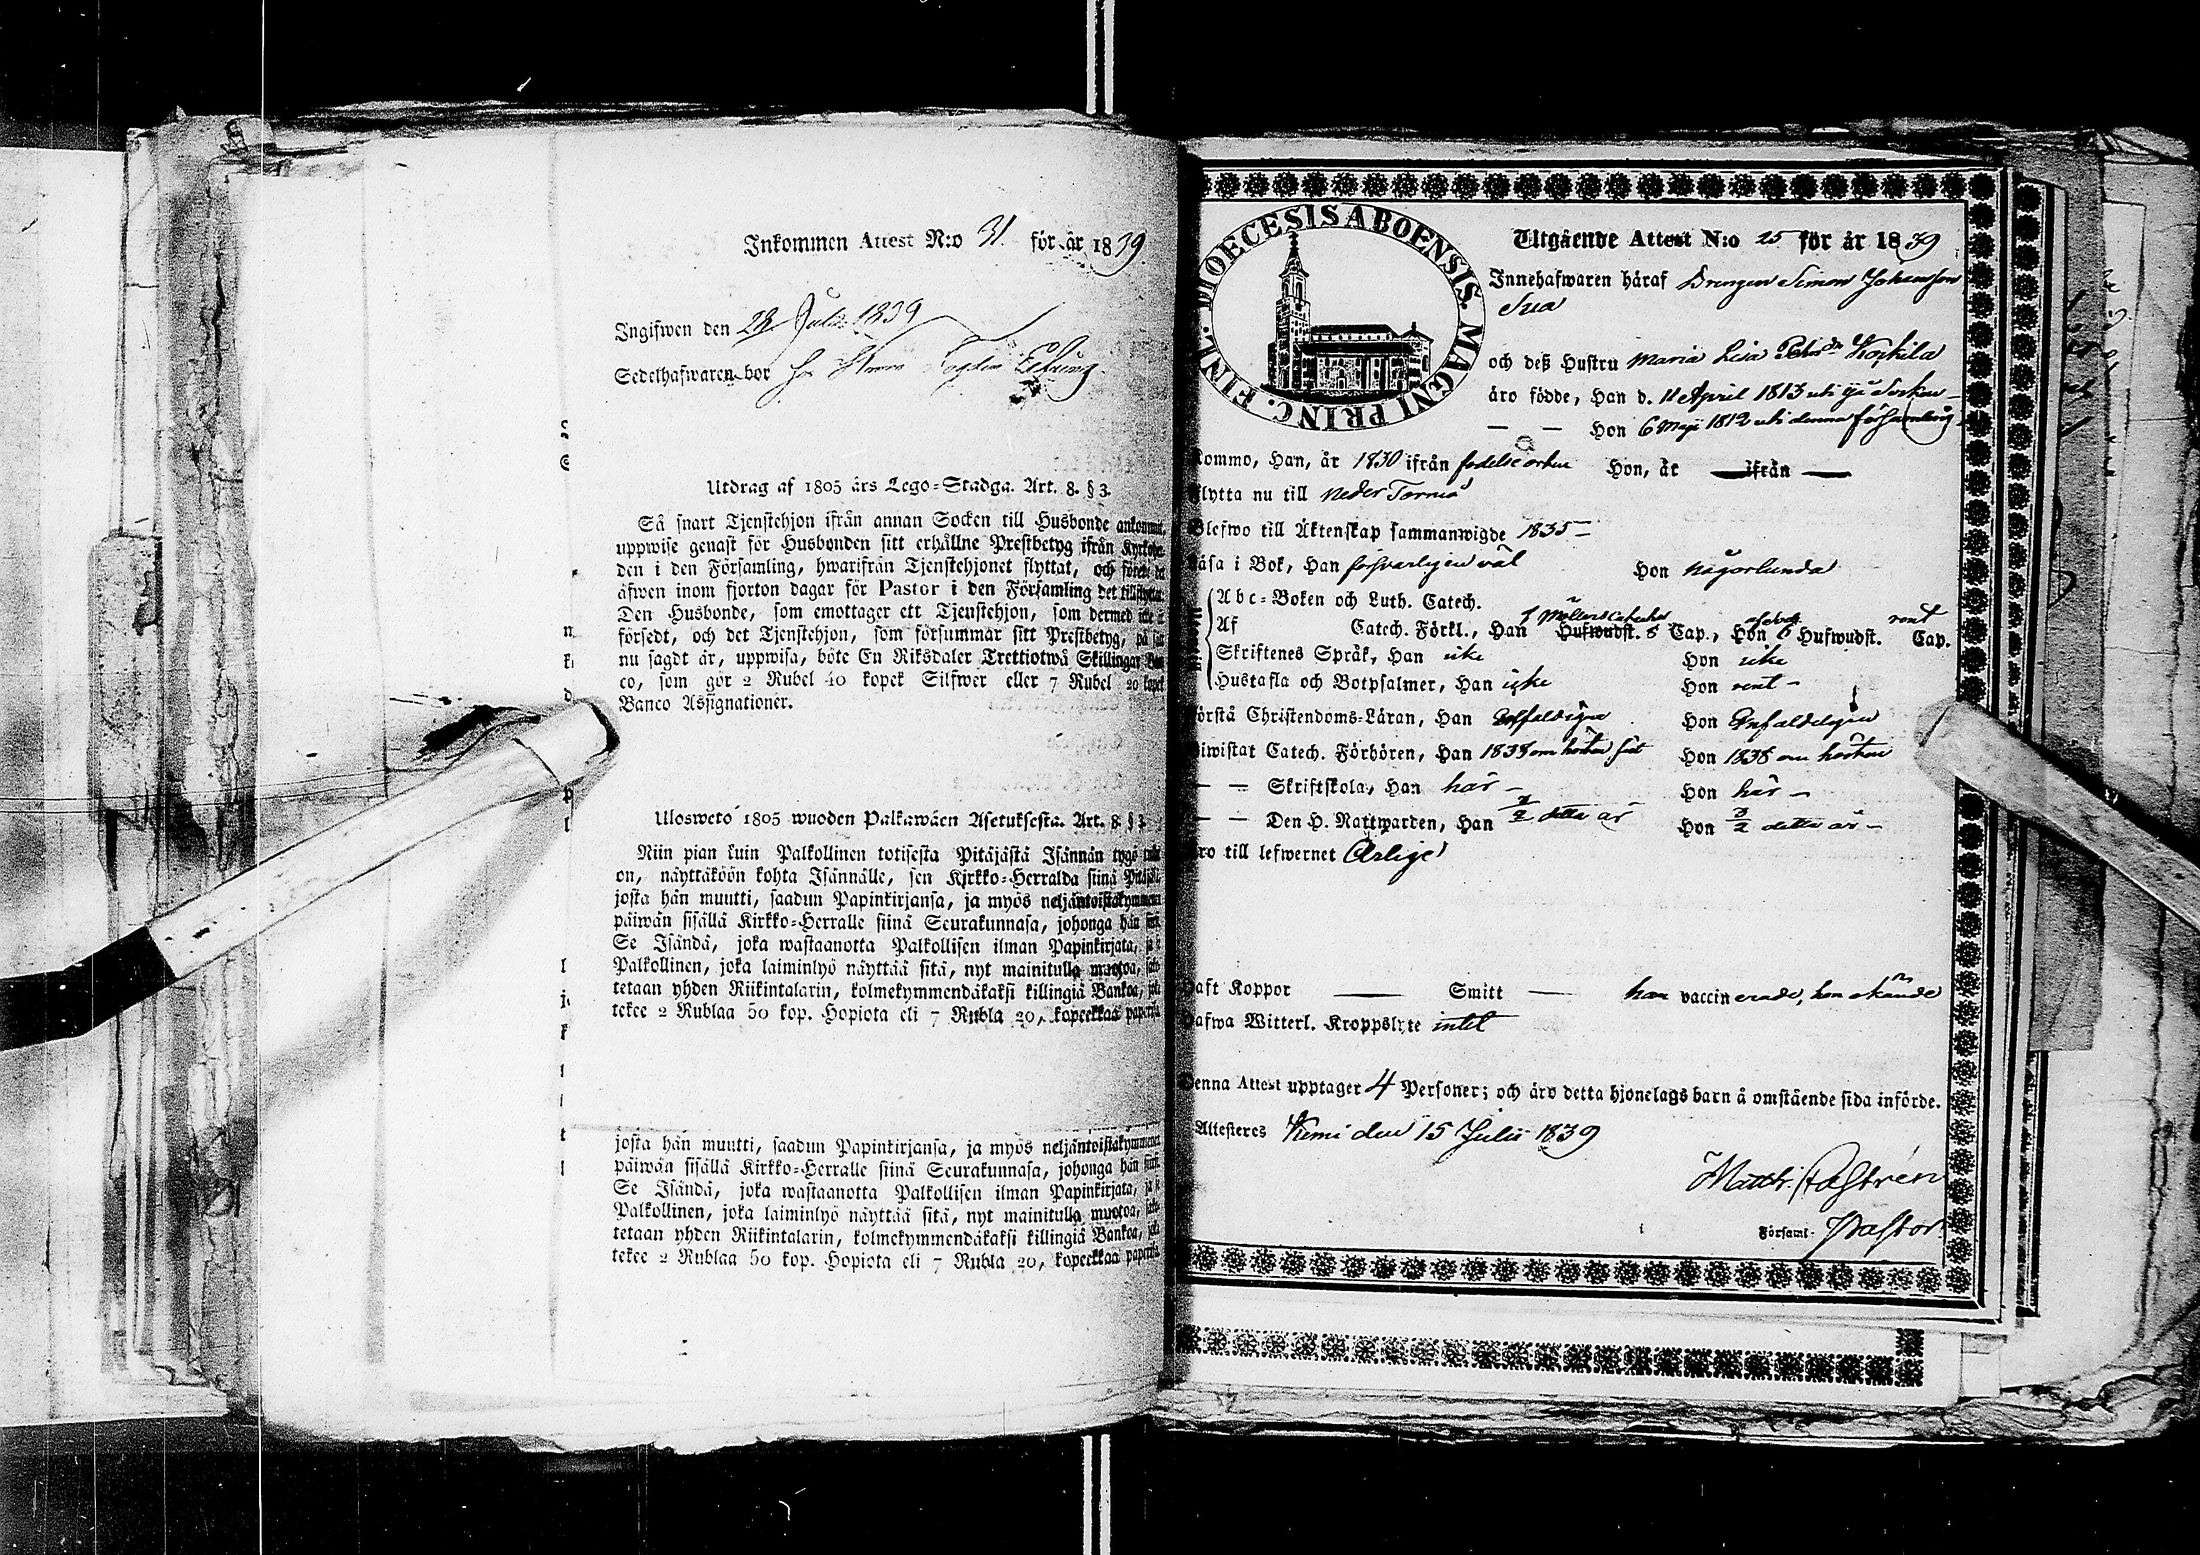 Inkommen Attest N:o 31. för år 1839
Ingifwen den 28 Julii 1839
Sedelhafwaren bor
Utdrag af 1805 års Lego-Stadga. Art. 8. § 3.
Så snart Tjenstehjon ifrån annan Socken till Husbonde ankommit,
uppwise genast för Husbonden sitt erhållne Prestbetyg ifrån
den i den Församling, hwarifrån Tjenstehjonet flyttat, och
äfwen inom fjorton dagar för Pastor i den Församling det
Den Husbonde, som emottager ett Tjenstehjon, som dermed icke är
försedt, och det Tjenstehjon, som försummar sitt Prestbetyg, på
nu sagdt är, uppwisa, böte En Riksdaler Trettiotwå Skillingar Ban
co, som gör 2 Rubel 40 kopek Silfwer eller 7 Rubel 20 kopek
Banco Assignationer.
Ulosweto 1805 wuoden Palkawäen Asetuksesta. Art. 8 § 3
Niin pian kuin Palkollinen totisesta Pitäjästä Isännän tygö
on, näyttäköön kohta Isännälle, sen Kirkko-Herralda siinä
josta hän muutti, saadun Papinkirjansa, ja myös neljäntoistakymmenen
päiwän sisällä Kirkko-Herralle siinä Seurakunnasa, johonga hän
Se Isändä, joka wastaanotta Palkollisen ilman Papinkirjata,
Palkollinen, joka laiminlyö näyttää sitä, nyt mainitulla muotoa,
tetaan yhden Riikintalarin, kolmekymmendäkaksi killingiä Bankoa,
tekee 2 Rublaa 50 kop. Hopiota eli 7 Rubla 20, kopeekkaa
josta hän muutti, saadun Papinkirjansa, ja myös neljäntoistakymmenen
päiwän sisällä Kirkko-Herralle siinä Seurakunnasa, johonga hän
Se Isändä, joka wastaanotta Palkollisen ilman Papinkirjata,
Palkollinen, joka laiminlyö näyttää sitä, nyt mainitulla muotoa,
tetaan yhden Riikintalarin, kolmekymmendäkaksi killingiä Bankoa,
tekee 2 Rublaa 50 kop. Hopiota eli 7 Rubla 20, kopeekkaa
DIOECESIS ABOENSIS. MAGNI PRINC. FINL.
Utgående Attest N:o 25 för år 1839
Innehafwaren häraf Drengen Simon Johansson
och deß Hustru Maria Lisa Koskila
äro födde, Han d. 11 April 1813 uti Ijå Socken
— — Hon 6 Maji 1812 uti denna församling
Kommo, Han, år 1830 ifrån födelseorten Hon, år — ifrån —
Flytta nu till Neder Torneå
Blefwo till Äktenskap sammanwigde 1835 —
Läsa i Bok, Han försvarligen väl Hon någorlunda
Abc-Boken och Luth. Catech.
Af Catech. Förkl., Han Hufwudst. 5 Cap., Hon 6 Hufwudst. rent Cap.
Skriftenes Språk, Han icke Hon icke
Hustafla och Botpsalmer, Han icke Hon rent —
Förstå Christendoms-Läran, Han Enfaldigen Hon Enfaldeligen
Biwistat Catech. Förhören, Han 1838 om hösten Hon 1838 om hösten
— — Skriftskola, Han här — Hon här —
— — Den H. Nattwarden, Han detta år Hon 3/2 detta år —
Äro till lefwernet Ärlige
Haft Koppor — Smitt — han vaccinerade, hon
Hafwa Witterl. Kroppslyte intet
Denna Attest upptager 4 Personer; och äro detta hjonelags barn å omstående sida införde.
Attesteres Kemi den 15 Julii 1839
Matth. Castrén
Församl. Pastor.